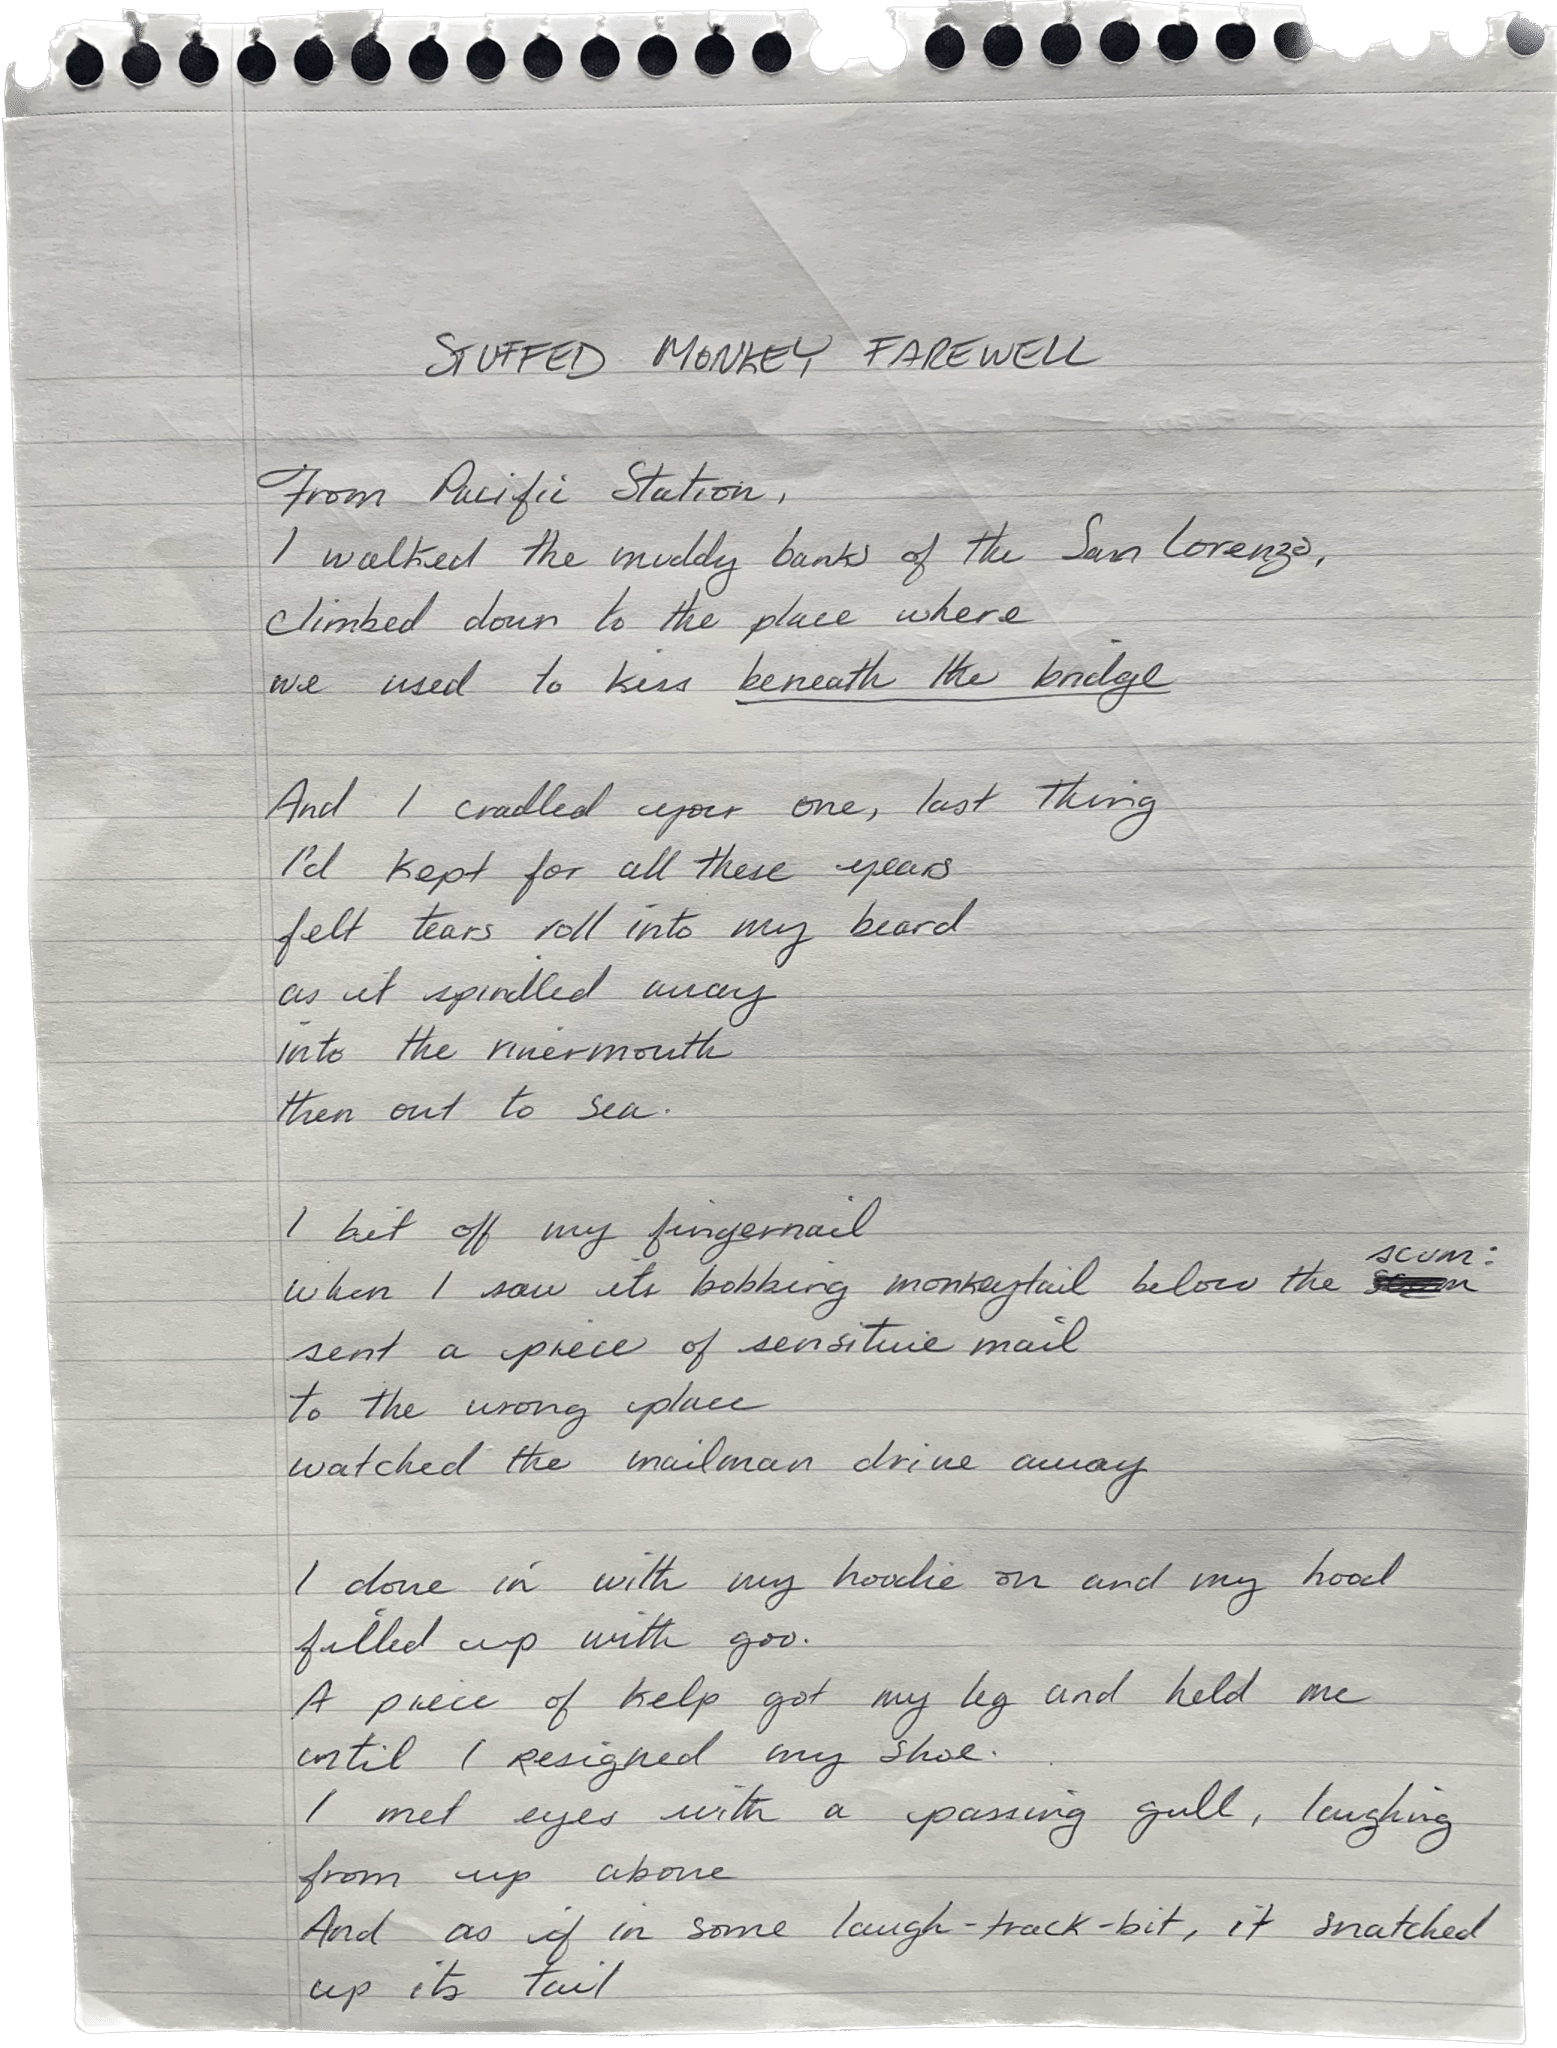 STUFFED MONKEY FAREWELL
From Pacific Station,
I walked the muddy banks of the San Lorenzo,
climbed down to the place where
we used to kiss beneath the bridge
And I cradled your one, last thing
I'd kept for all these years
felt tears roll into my beard
as it spindled away
into the rivermouth
then out to sea.
I bit off my fingernail
when I saw its bobbing monkeytail below the scum:
sent a piece of sensitive mail
to the wrong place
watched the mailman drive away
I dove in with my hoodie on and my hood
filled up with goo.
A piece of kelp got my leg and held me
until I resigned my shoe.
I met eyes with a passing gull, laughing
from up above
And as if in some laugh-track-bit, it snatched
up its tail